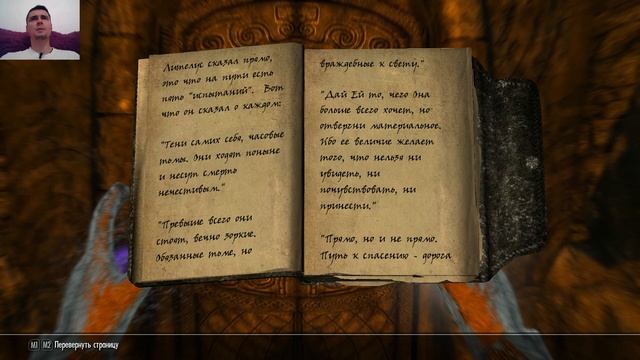 Лителус сказал прямо,
это что на пути есть
пять "испытаний". Вот
что он сказал о каждом:
"Тени самих себя, часовые
тьмы. Они ходят поныне
и несут смерть
нечестивым."
"Превыше всего они
стоят, вечно зоркие.
Обязанные тьме, но
враждебные к свету."
"Дай Ей то, чего Она
больше всего хочет, но
отвергни материальное.
Ибо ее величие желает
того, что нельзя ни
увидеть, ни
почувствовать, ни
принести."
"Прямо, но и не прямо.
Путь к спасению - дорога
M1 M2 Перевернуть страницу